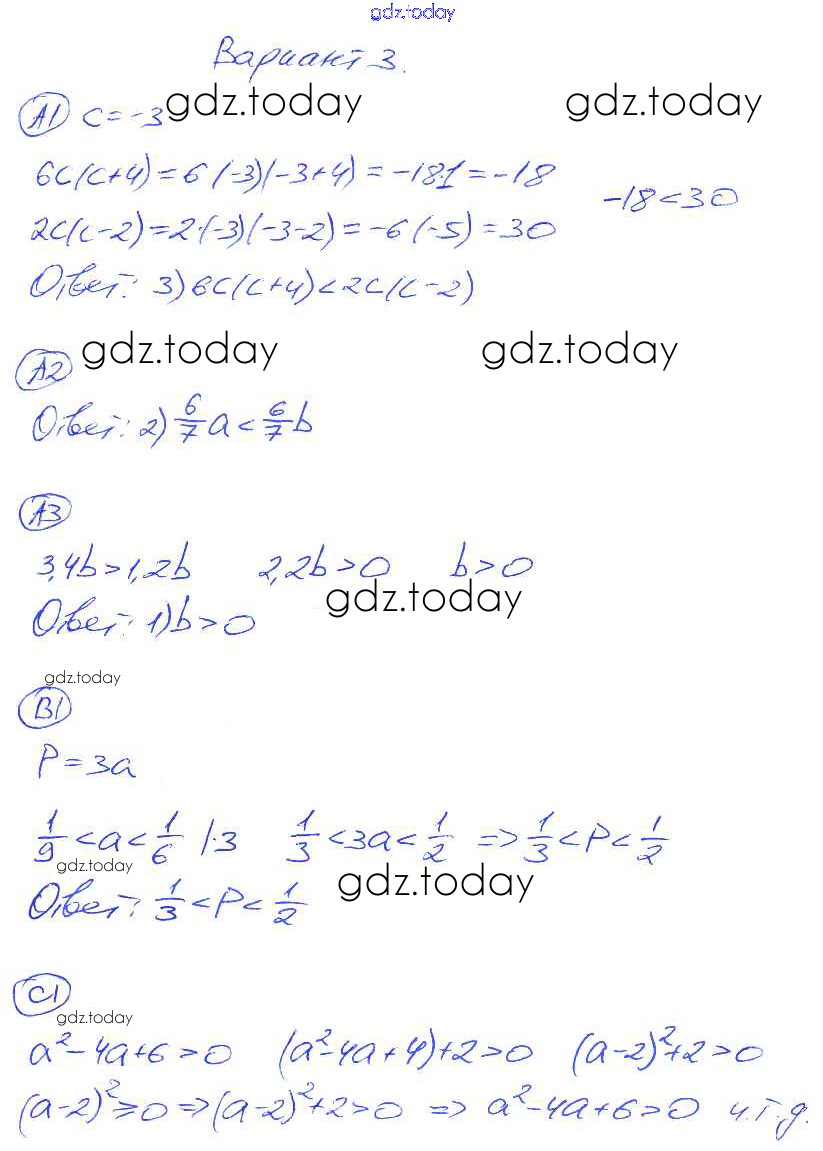 gdz.today
Вариант 3.
А1 c = -3 gdz.today gdz.today
6c(c+4) = 6·(-3)(-3+4) = -18·1 = -18
-18 < 30
2c(c-2) = 2·(-3)(-3-2) = -6·(-5) = 30
Ответ: 3) 6c(c+4) < 2c(c-2)
А2 gdz.today gdz.today
Ответ: 2) 6/7 a < 6/7 b
А3
3,4b > 1,2b 2,2b > 0 b > 0
gdz.today
Ответ: 1) b > 0
gdz.today
В1
P = 3a
1/9 < a < 1/6 |·3 1/3 < 3a < 1/2 => 1/3 < P < 1/2
gdz.today gdz.today
Ответ: 1/3 < P < 1/2
С1
gdz.today
a² - 4a + 6 > 0 (a² - 4a + 4) + 2 > 0 (a-2)² + 2 > 0
(a-2)² ≥ 0 => (a-2)² + 2 > 0 => a² - 4a + 6 > 0 ч.т.д.